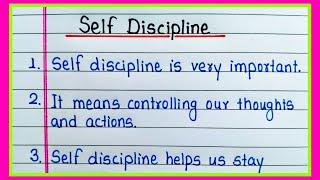 Self Discipline
1. Self discipline is very important.
2. It means controlling our thoughts
and actions.
3. Self discipline helps us stay